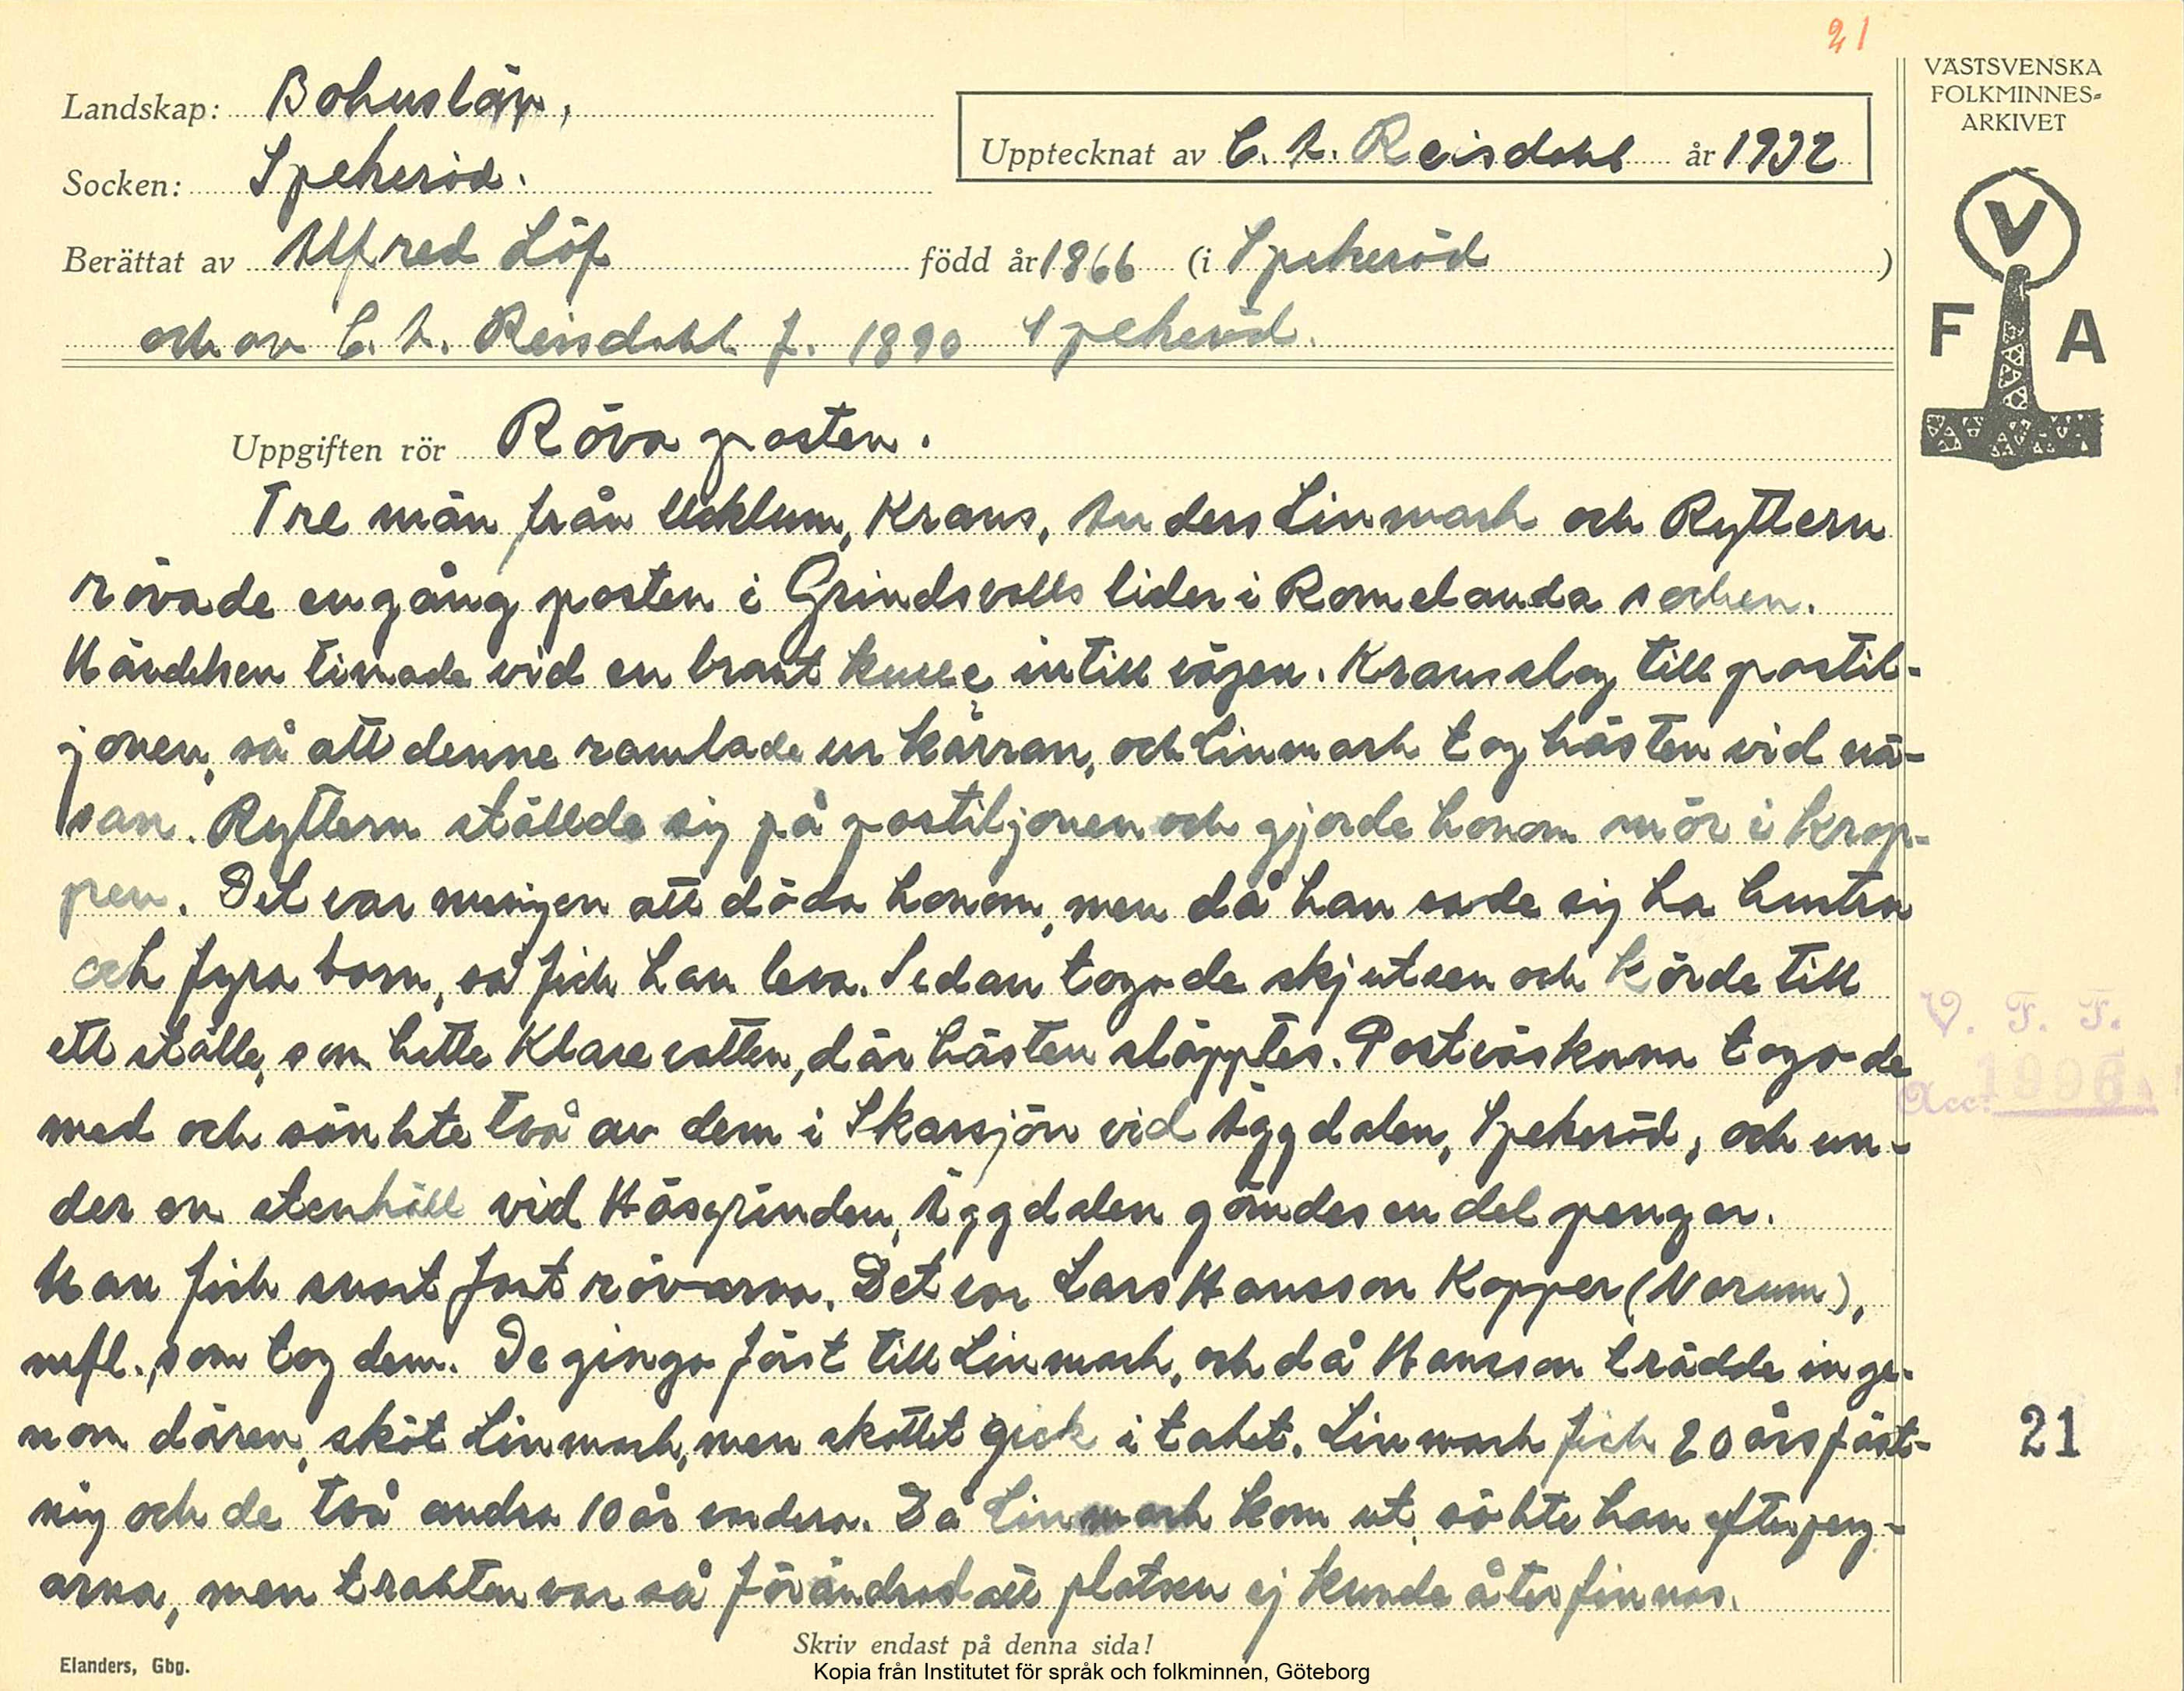 21
VÄSTSVENSKA
FOLKMINNES=
ARKIVET
Landskap: Bohuslän,
Upptecknat av C. A. Reisdahl år 1932
Socken: Spekeröd.
Berättat av Alfred Löf född år 1866 (i Spekeröd)
och av C. A. Reisdahl f. 1890 Spekeröd.
V
F A
Uppgiften rör Röva posten.
Tre män från Ucklum, Kraus, Anders Linmark och Ryttern
rövade en gång posten i Grindsvalls lider i Romelanda socken.
Händelsen timade vid en brant kulle intill vägen. Kraus slog till postil-
jonen, så att denne ramlade ur kärran, och Linmark tog hästen vid nä-
san. Ryttern ställde sig på postiljonen och gjorde honom mör i krop-
pen. Det var meningen att döda honom, men då han sade sig ha hustru
och fyra barn, så fick han leva. Sedan togo de skjutsen och körde till
ett ställe, som hette Klarevatten, där hästen släpptes. Postväskorna togo de
med och sänkte två av dem i Skarsjön vid Äggdalen, Spekeröd, och un-
der en stenhäll vid Häsgrinden, Äggdalen gömdes en del pengar.
Man fick snart fast rövarna. Det var Lars Hansson Kopper (Norum),
mfl., som tog dem. De gingo först till Linmark, och då Hansson trädde inge-
nom dören, sköt Linmark, men skottet gick i taket. Linmark fick 20 års fäst-
ning och de två andra 10 år endera. Då Linmark kom ut, sökte han efter peng-
arna, men trakten var så förändrad att platsen ej kunde återfinnas.
V. F. F.
Acc. 1996
21
Skriv endast på denna sida!
Elanders, Gbg.
Kopia från Institutet för språk och folkminnen, Göteborg